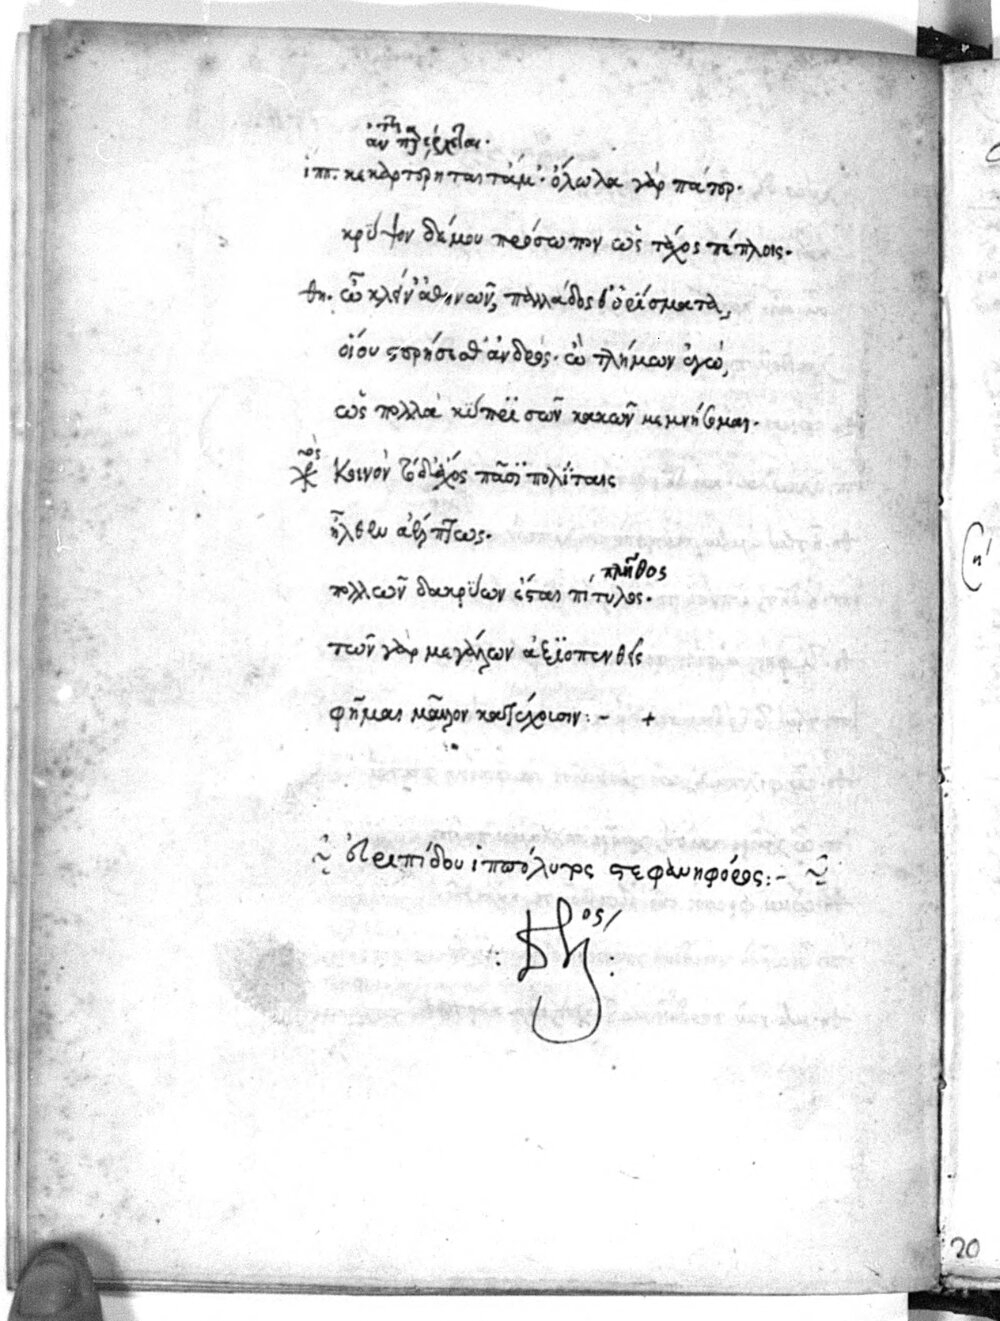 ἱππ. κεκαρτέρηται τἄμ'· ὄλωλα γὰρ πάτερ.
κρύψον δέ μου πρόσωπον ὡς τάχος πέπλοις.
θη. ὦ κλείν' ἀθηνῶν, παλλάδος θ' ὁρίσματα,
οἵου στερήσεσθ' ἀνδρός. ὦ τλήμων ἐγώ,
ὡς πολλὰ κύπρι σῶν κακῶν μεμνήσομαι.
χορός Κοινὸν τόδ' ἄχος πᾶσι πολίταις
ἦλθεν ἀέλπτως.
πλῆθος
πολλῶν δακρύων ἔσται πίτυλος.
τῶν γὰρ μεγάλων ἀξιοπενθεῖς
φῆμαι μᾶλλον κατέχουσιν :- +
εὐριπίδου ἱππόλυτος στεφανηφόρος :-
τέλος
20